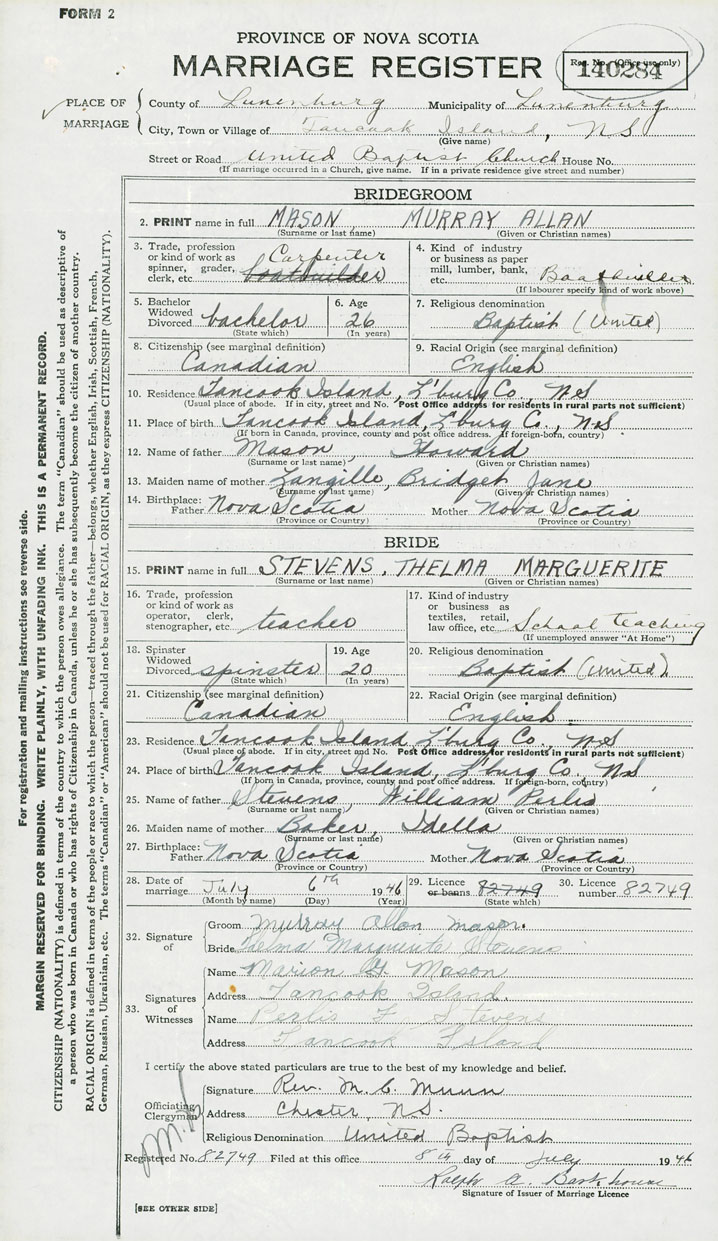 FORM 2
PROVINCE OF NOVA SCOTIA
MARRIAGE REGISTER
Reg. No. (Office use only)
140284
PLACE OF MARRIAGE
County of Lunenburg Municipality of Lunenburg
City, Town or Village of Tancook Island, N S
(Give name)
Street or Road United Baptist Church House No.
(If marriage occurred in a Church, give name. If in a private residence give street and number)
BRIDEGROOM
2. PRINT name in full MASON MURRAY ALLAN
(Surname or last name) (Given or Christian names)
3. Trade, profession or kind of work as spinner, grader, clerk, etc. Carpenter boatbuilder
4. Kind of industry or business as paper mill, lumber, bank, etc.
(If labourer specify kind of work above)
5. Bachelor Widowed Divorced bachelor
(State which)
6. Age 26
(In years)
7. Religious denomination
Baptist (United)
8. Citizenship (see marginal definition)
Canadian
9. Racial Origin (see marginal definition)
English
10. Residence Tancook Island, L'burg Co., N S
(Usual place of abode. If in city, street and No. Post Office address for residents in rural parts not sufficient)
11. Place of birth Tancook Island, L'burg C., N.S
(If born in Canada, province, county and post office address. If foreign-born, country)
12. Name of father Mason, Howard
(Surname or last name) (Given or Christian names)
13. Maiden name of mother Langille, Bridget Jane
(Surname or last name) (Given or Christian names)
14. Birthplace: Father Nova Scotia Mother Nova Scotia
(Province or Country) (Province or Country)
BRIDE
15. PRINT name in full STEVENS, THELMA MARGUERITE
(Surname or last name) (Given or Christian names)
16. Trade, profession or kind of work as operator, clerk, stenographer, etc. teacher
17. Kind of industry or business as textiles, retail, law office, etc. School teaching
(If unemployed answer "At Home")
18. Spinster Widowed Divorced spinster
(State which)
19. Age 20
(In years)
20. Religious denomination
Baptist (United)
21. Citizenship (see marginal definition)
Canadian
22. Racial Origin (see marginal definition)
English
23. Residence Tancook Island L'burg Co., N S
(Usual place of abode. If in city, street and No. Post Office address for residents in rural parts not sufficient)
24. Place of birth Tancook Island, L'burg Co. N S
(If born in Canada, province, county and post office address. If foreign-born, country)
25. Name of father Stevens, William Perlis
(Surname or last name) (Given or Christian names)
26. Maiden name of mother Baker, Idella
(Surname or last name) (Given or Christian names)
27. Birthplace: Father Nova Scotia Mother Nova Scotia
(Province or Country) (Province or Country)
28. Date of marriage July 6th 1946
(Month by name) (Day) (Year)
29. Licence or banns 82749
(State which)
30. Licence number 82749
32. Signature of
Groom Murray Allan Mason.
Bride Thelma Marguerite Stevens
33. Signatures of Witnesses
Name Marion G. Mason
Address Tancook Island.
Name Perlis F. Stevens
Address Tancook Island
I certify the above stated particulars are true to the best of my knowledge and belief.
Officiating Clergyman
Signature Rev. M. C. Munn
Address Chester, N.S.
Religious Denomination United Baptist
Registered No. 82749 Filed at this office 8th day of July 1946
Ralph A. Barkhouse
Signature of Issuer of Marriage Licence
[SEE OTHER SIDE]
For registration and mailing instructions see reverse side.
MARGIN RESERVED FOR BINDING. WRITE PLAINLY, WITH UNFADING INK. THIS IS A PERMANENT RECORD.
CITIZENSHIP (NATIONALITY) is defined in terms of the country to which the person owes allegiance. The term "Canadian" should be used as descriptive of
a person who was born in Canada or who has rights of Citizenship in Canada, unless he or she has subsequently become the citizen of another country.
RACIAL ORIGIN is defined in terms of the people or race to which the person—traced through the father—belongs, whether English, Irish, Scottish, French,
German, Russian, Ukrainian, etc. The terms "Canadian" or "American" should not be used for RACIAL ORIGIN, as they express CITIZENSHIP (NATIONALITY).